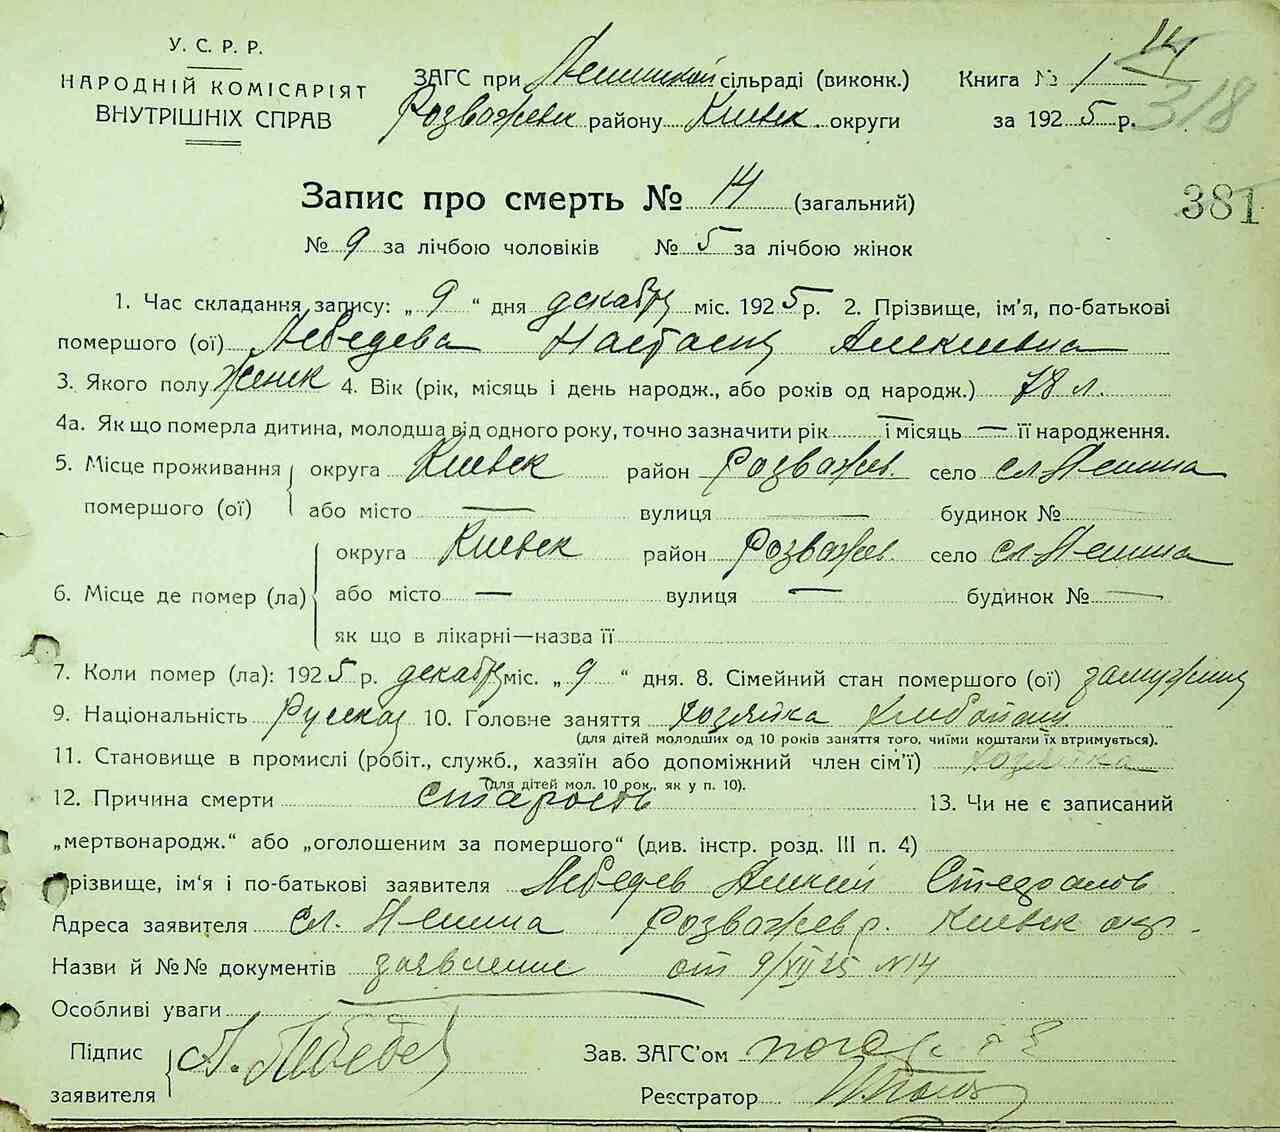 У. С. Р. Р.
НАРОДНІЙ КОМІСАРІЯТ
ВНУТРІШНІХ СПРАВ
ЗАГС при Ленинской сільраді (виконк.)
Розважевск району Киевск. округи
Книга № 1
за 1925 р.
14
318
381
Запис про смерть № 14 (загальний)
№ 9 за лічбою чоловіків № 5 за лічбою жінок
1. Час складання запису: „9“ дня декабря міс. 1925 р. 2. Прізвище, ім'я, по-батькові
помершого (ої) Лебедева Настасия Алексеевна
3. Якого полу Женск 4. Вік (рік, місяць і день народж., або років од народж.) 78 л.
4а. Як що померла дитина, молодша від одного року, точно зазначити рік — і місяць — її народження.
5. Місце проживання помершого (ої) округа Киевск район Розважев. село сл. Ленина
або місто — вулиця — будинок № —
6. Місце де помер (ла) округа Киевск район Розважев. село сл. Ленина
або місто — вулиця — будинок № —
як що в лікарні—назва її
7. Коли помер (ла): 1925 р. декабря міс. „9“ дня. 8. Сімейний стан помершого (ої) замужняя
9. Національність Русская 10. Головне заняття хозяйка
(для дітей молодших од 10 років заняття того, чиїми коштами їх втримується).
11. Становище в промислі (робіт., служб., хазяїн або допоміжний член сім'ї) хозяйка
(для дітей мол. 10 рок., як у п. 10).
12. Причина смерти старость 13. Чи не є записаний
„мертвонародж.“ або „оголошеним за помершого“ (див. інстр. розд. III п. 4)
Прізвище, ім'я і по-батькові заявителя Лебедев Алексей Стефанов
Адреса заявителя сл. Ленина Розважев р. Киевск окр.
Назви й №№ документів заявление от 9/XII 25 N 14
Особливі уваги
Підпис заявителя А. Лебедев
Зав. ЗАГС'ом
Реєстратор